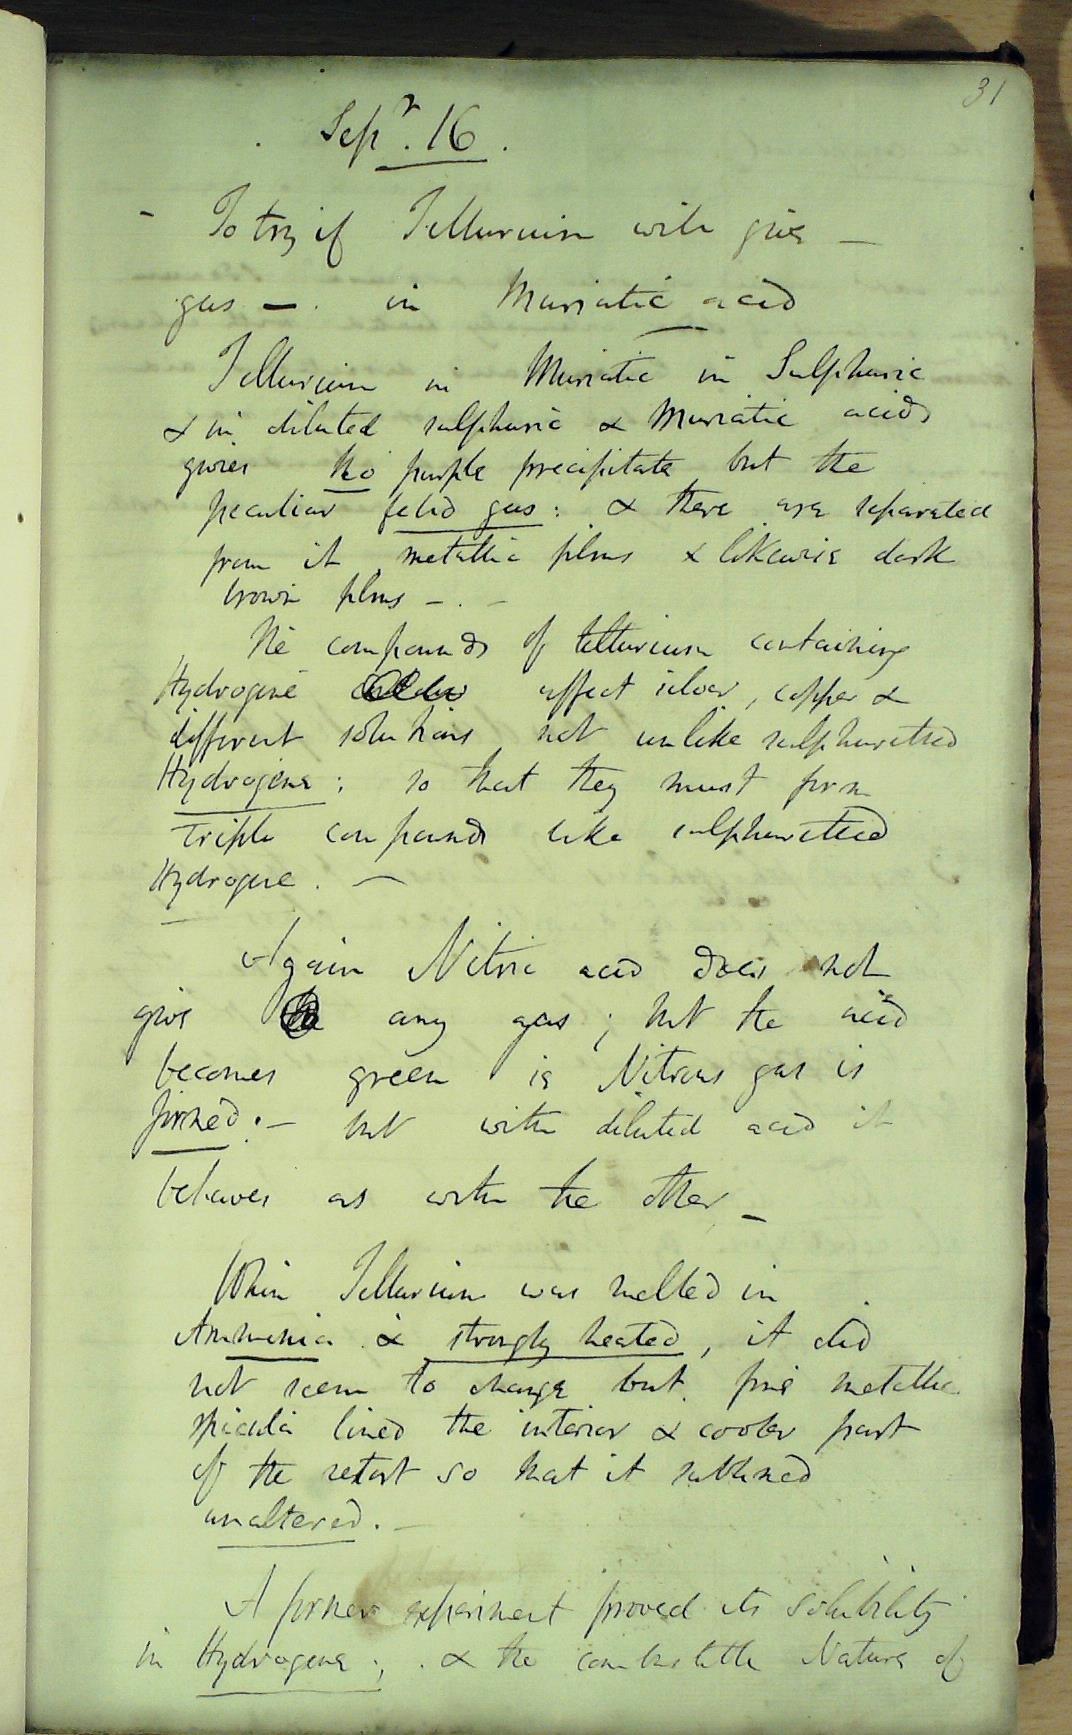 31
Sepr. 16.
- To try if Tellurium will give —
gas —. in Muriatic acid
Tellurium in Muriatic in Sulphuric
& in diluted sulphuric & Muriatic acids
gives no purple precipitate but the
peculiar fetid gas: & there are separated
from it metallic films & likewise dark
brown films -. -
The compounds of tellurium containing
Hydrogene affect silver, copper &
different solutions not unlike sulphuretted
Hydrogene: so that they must form
triple compounds like sulphuretted
Hydrogene. —
Again Nitric acid does not
give any gas; but the acid
becomes green ie Nitrous gas is
formed:- but with diluted acid it
behaves as with the other -
When Tellurium was melted in
Ammonia & strongly heated, it did
not seem to change but fine metallic
spicula lined the interior & cooler part
of the retort so that it sublimed
unaltered. -
A former experiment proved its solubility
in Hydrogene; . & the combustible Nature of